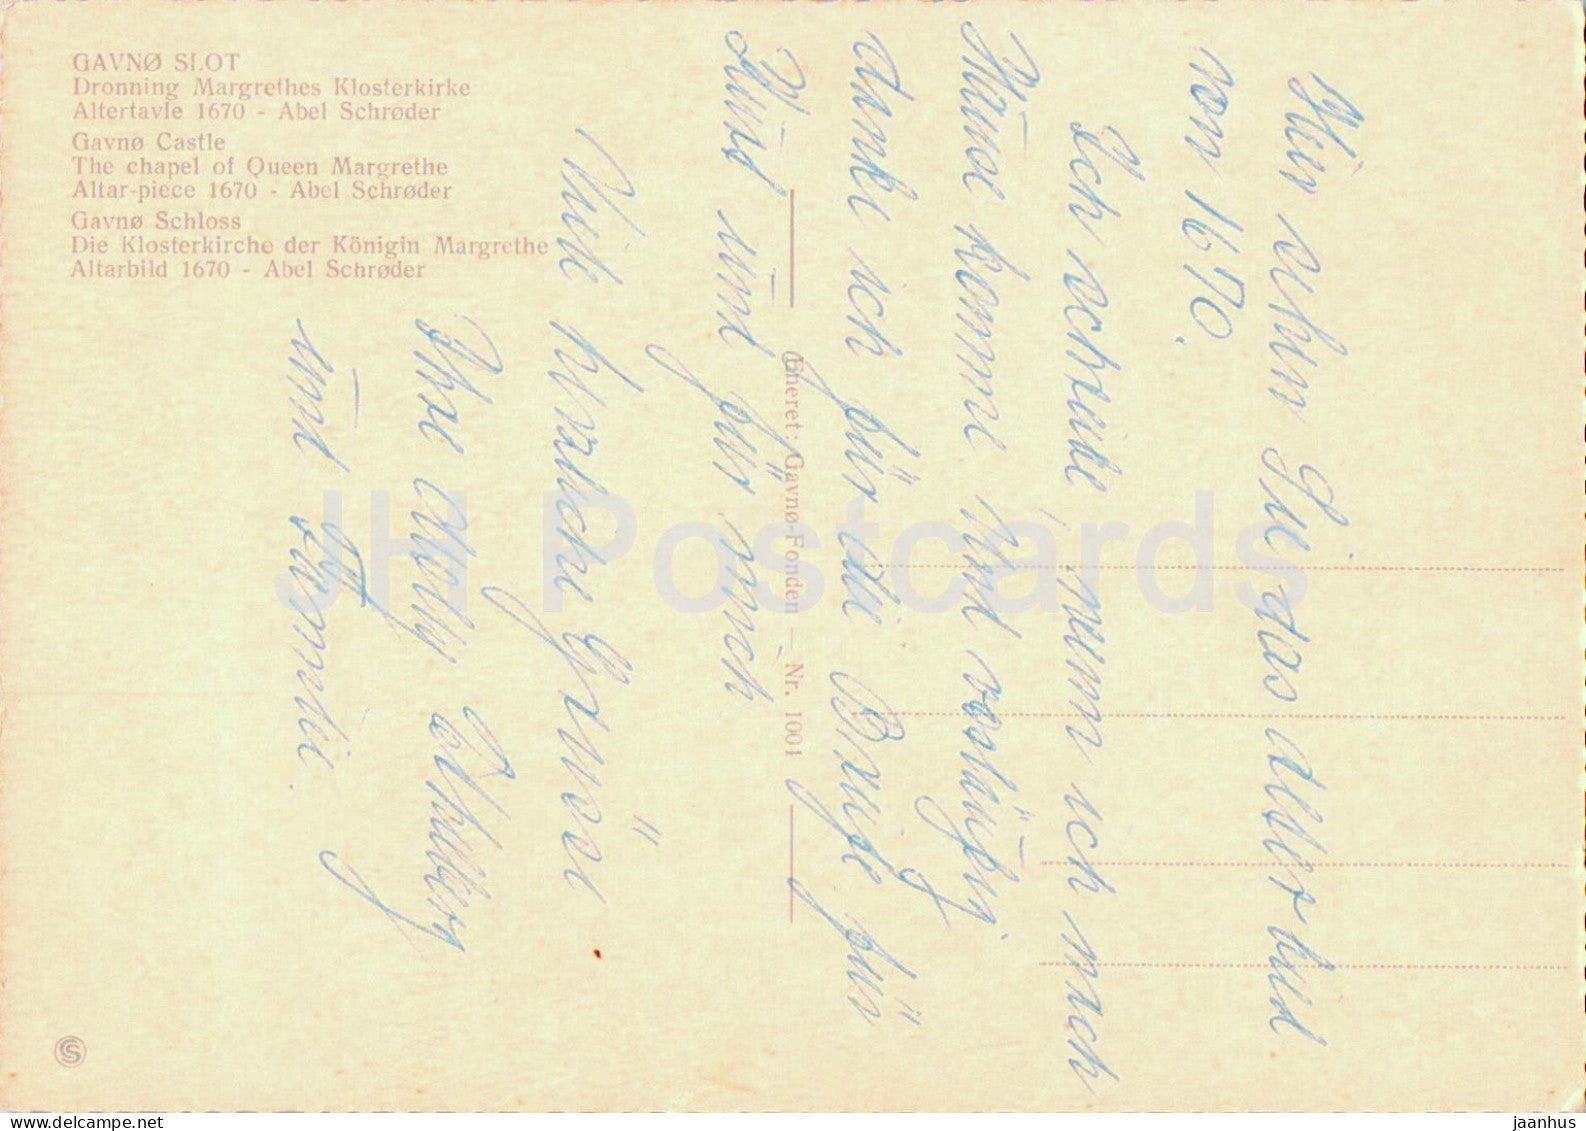 GAVNØ SLOT
Dronning Margrethes Klosterkirke
Altertavle 1670 - Abel Schrøder
Gavnø Castle
The chapel of Queen Margrethe
Altar-piece 1670 - Abel Schrøder
Gavnø Schloss
Die Klosterkirche der Königin Margrethe
Altarbild 1670 - Abel Schrøder
Eneret: Gavnø-Fonden — Nr. 1001
Hier sehen Sie das alter bild
von 1670.
Ich schreibe, wenn ich nach
Hause komme und vorläufig
danke ich für die Briefe für
und für mich
Viele herzliche Grüsse
Ihre
und Familie.
JH Postcards
delcampe.net
jaanhus